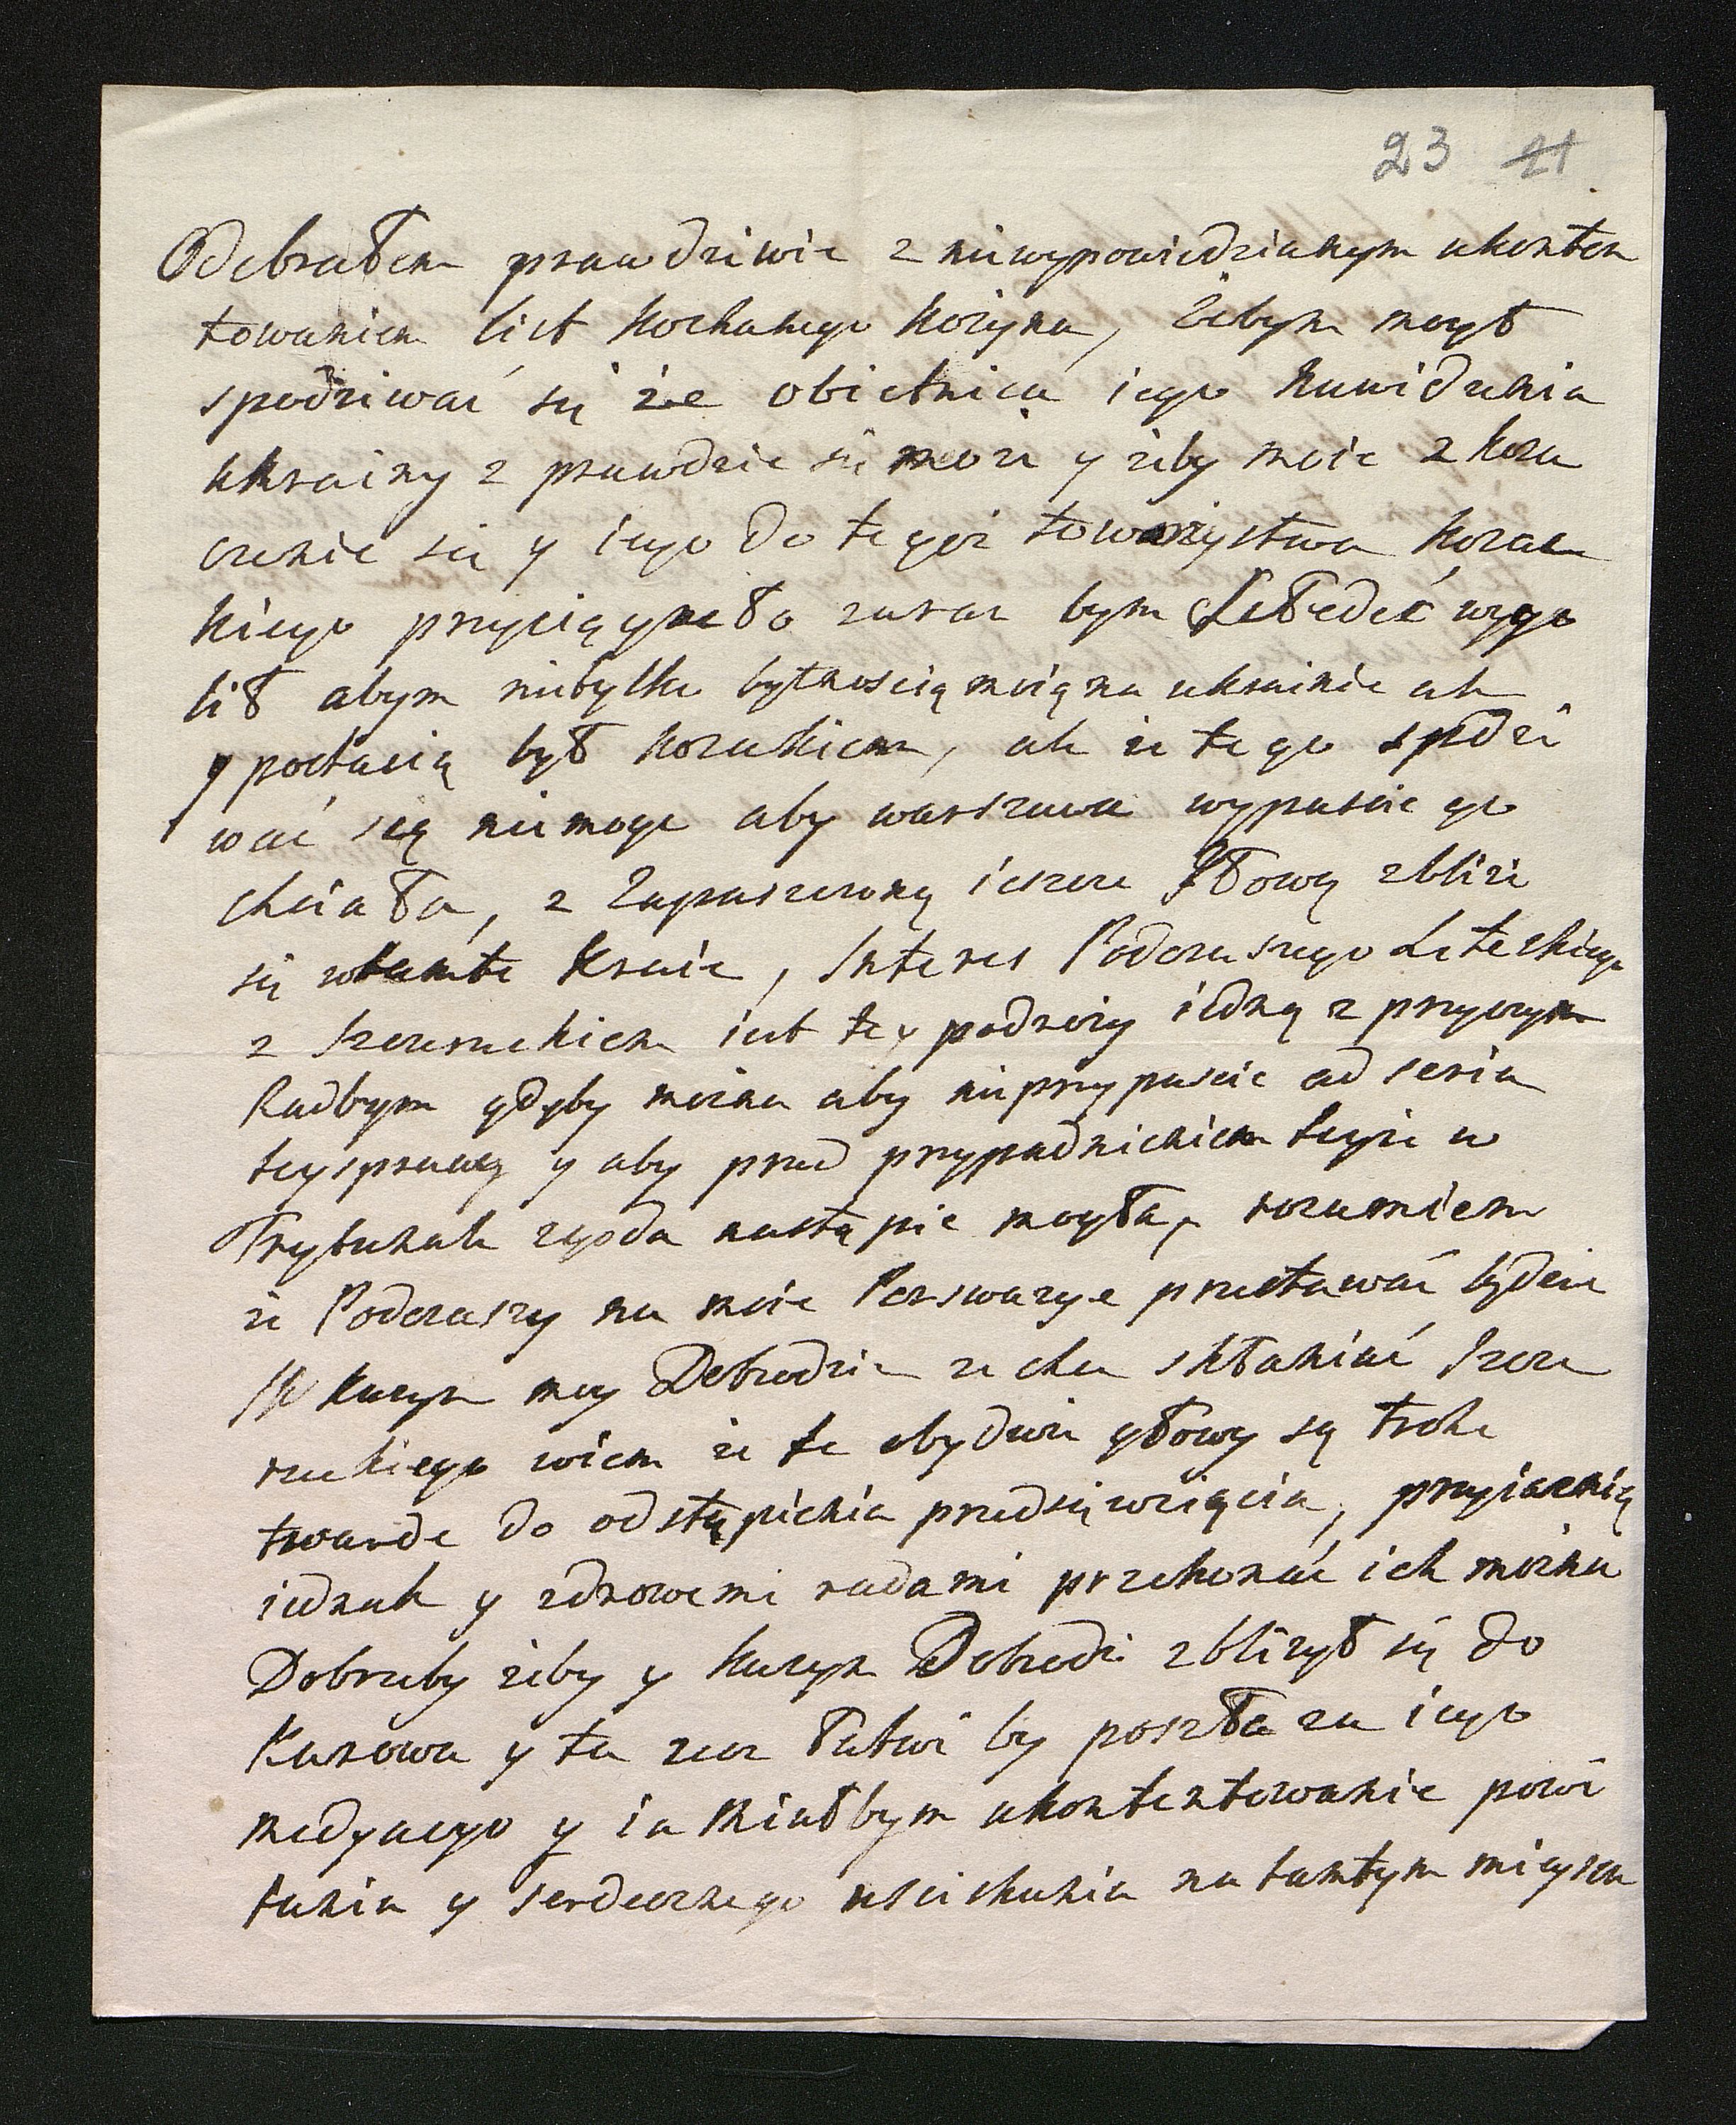 23 21
Odebrałem prawdziwie z niewypowiedzianym ukonten
towaniem list kochanego kozyna, żebym mogł
spodziwać się że obietnica iego nawidzenia
ukrainy z prawdzie się może y żeby moie zkoza
czenie się y iego do tegoż towarzystwa kozac
kiego przyciągneło zaraz bym łeb wygo
lił abym nietylko bytnoscią moią na ukrainie ale
y postacią był kozakiem, ale że tego spodzi
wać się niemoge aby warszawa wypuscic go
chciała, z zapuszczoną ieszcze głową zbliże
się w tamte kraie, Interes Podczaszego
z iest tey podroży iedną z przyczyn
Radbym gdyby można aby nieprzypuscic ad seria
tey sprawy y aby przed przypadnieniem teyże w
Trybunale zgoda nastąpic mogła, rozumiem
że Podczaszy na moie Perswazye przestawać będzie
JW kuzyn moy Dobrodzi zechce skłaniać Szcze
niewskiego wiem że te obydwie głowy są troche
twarde do odstąpienia przedsięwzięcia, przyiaznią
iednak y zdrowemi radami przekonać ich można
Dobrzeby żeby y kuzyn Dobrodzi zbliżył się do
y ta rzecz łatwi by poszła za iego
medyacyo y ia miałbym ukontentowanie powi
tania y serdecznego usciskania na tamtym mieyscu